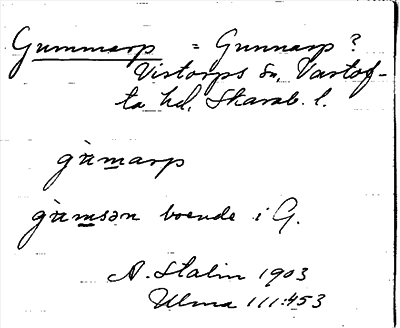 Gummarp = Gunnarp?
Vistorps sn, Vartof-
ta hd, Skarab. l.
gùmarp
gùmsən boende i G.
A. Stalin 1903
Ulma 111:453